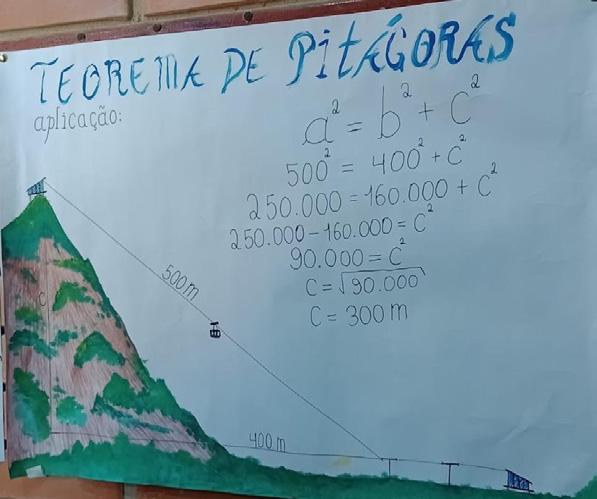 TEOREMA DE PITÁGORAS
aplicação:
a² = b² + c²
500² = 400² + c²
250.000 = 160.000 + c²
250.000 - 160.000 = c²
90.000 = c²
c = √90.000
c = 300 m
500 m
c
400 m